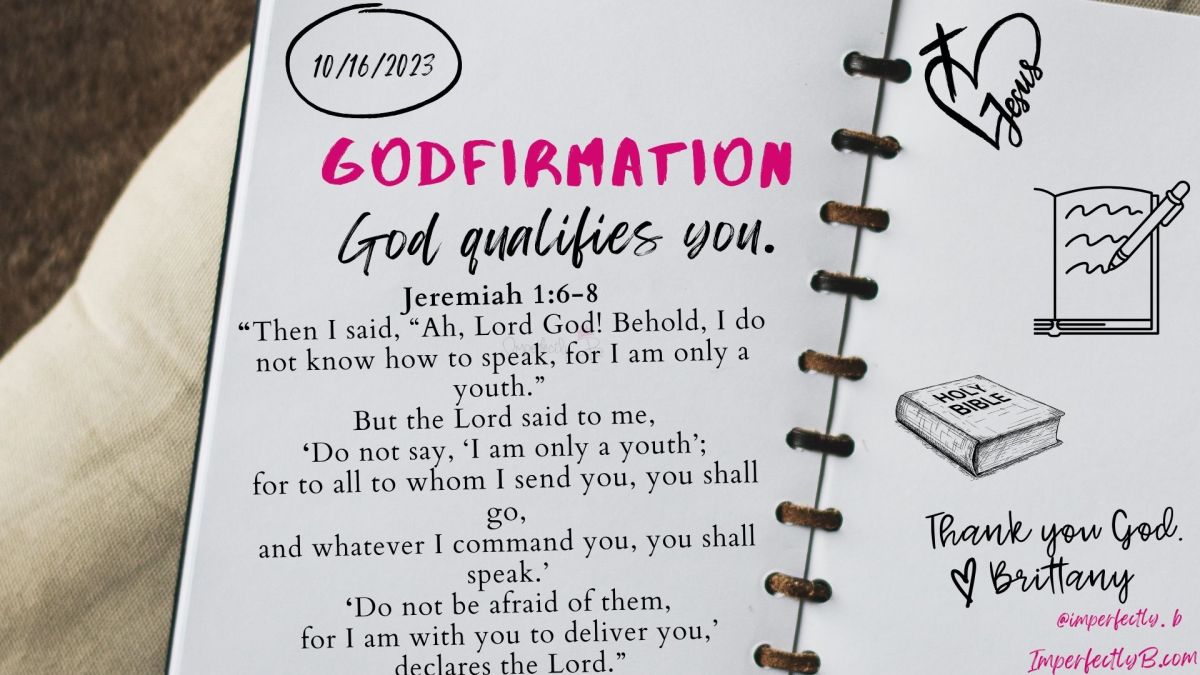 10/16/2023
GODFIRMATION
God qualifies you.
Jeremiah 1:6-8
“Then I said, “Ah, Lord God! Behold, I do
not know how to speak, for I am only a
youth.”
But the Lord said to me,
‘Do not say, ‘I am only a youth’;
for to all to whom I send you, you shall
go,
and whatever I command you, you shall
speak.’
‘Do not be afraid of them,
for I am with you to deliver you,’
declares the Lord.”
Imperfectly B
Jesus
HOLY
BIBLE
Thank you God.
Brittany
@imperfectly.b
ImperfectlyB.com